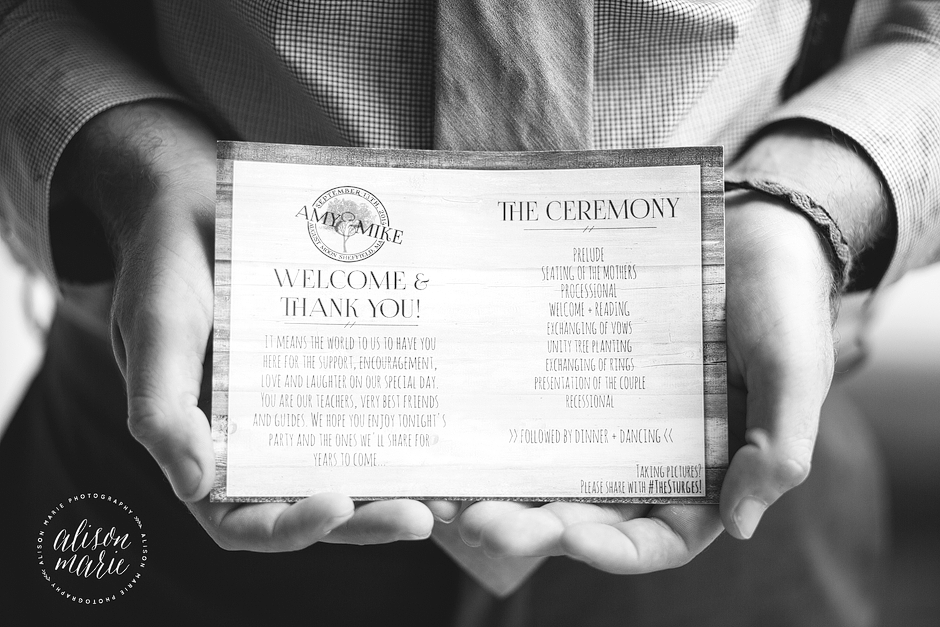 SEPTEMBER
AMY & MIKE
WELCOME &
THANK YOU!
IT MEANS THE WORLD TO US TO HAVE YOU
HERE FOR THE SUPPORT, ENCOURAGEMENT,
LOVE AND LAUGHTER ON OUR SPECIAL DAY.
YOU ARE OUR TEACHERS, VERY BEST FRIENDS
AND GUIDES. WE HOPE YOU ENJOY TONIGHT'S
PARTY AND THE ONES WE'LL SHARE FOR
YEARS TO COME...
THE CEREMONY
PRELUDE
SEATING OF THE MOTHERS
PROCESSIONAL
WELCOME + READING
EXCHANGING OF VOWS
UNITY TREE PLANTING
EXCHANGING OF RINGS
PRESENTATION OF THE COUPLE
RECESSIONAL
>> FOLLOWED BY DINNER + DANCING <<
TAKING PICTURES?
PLEASE SHARE WITH #THESTURGES!
ALISON MARIE PHOTOGRAPHY
alison
marie
ALISON MARIE PHOTOGRAPHY